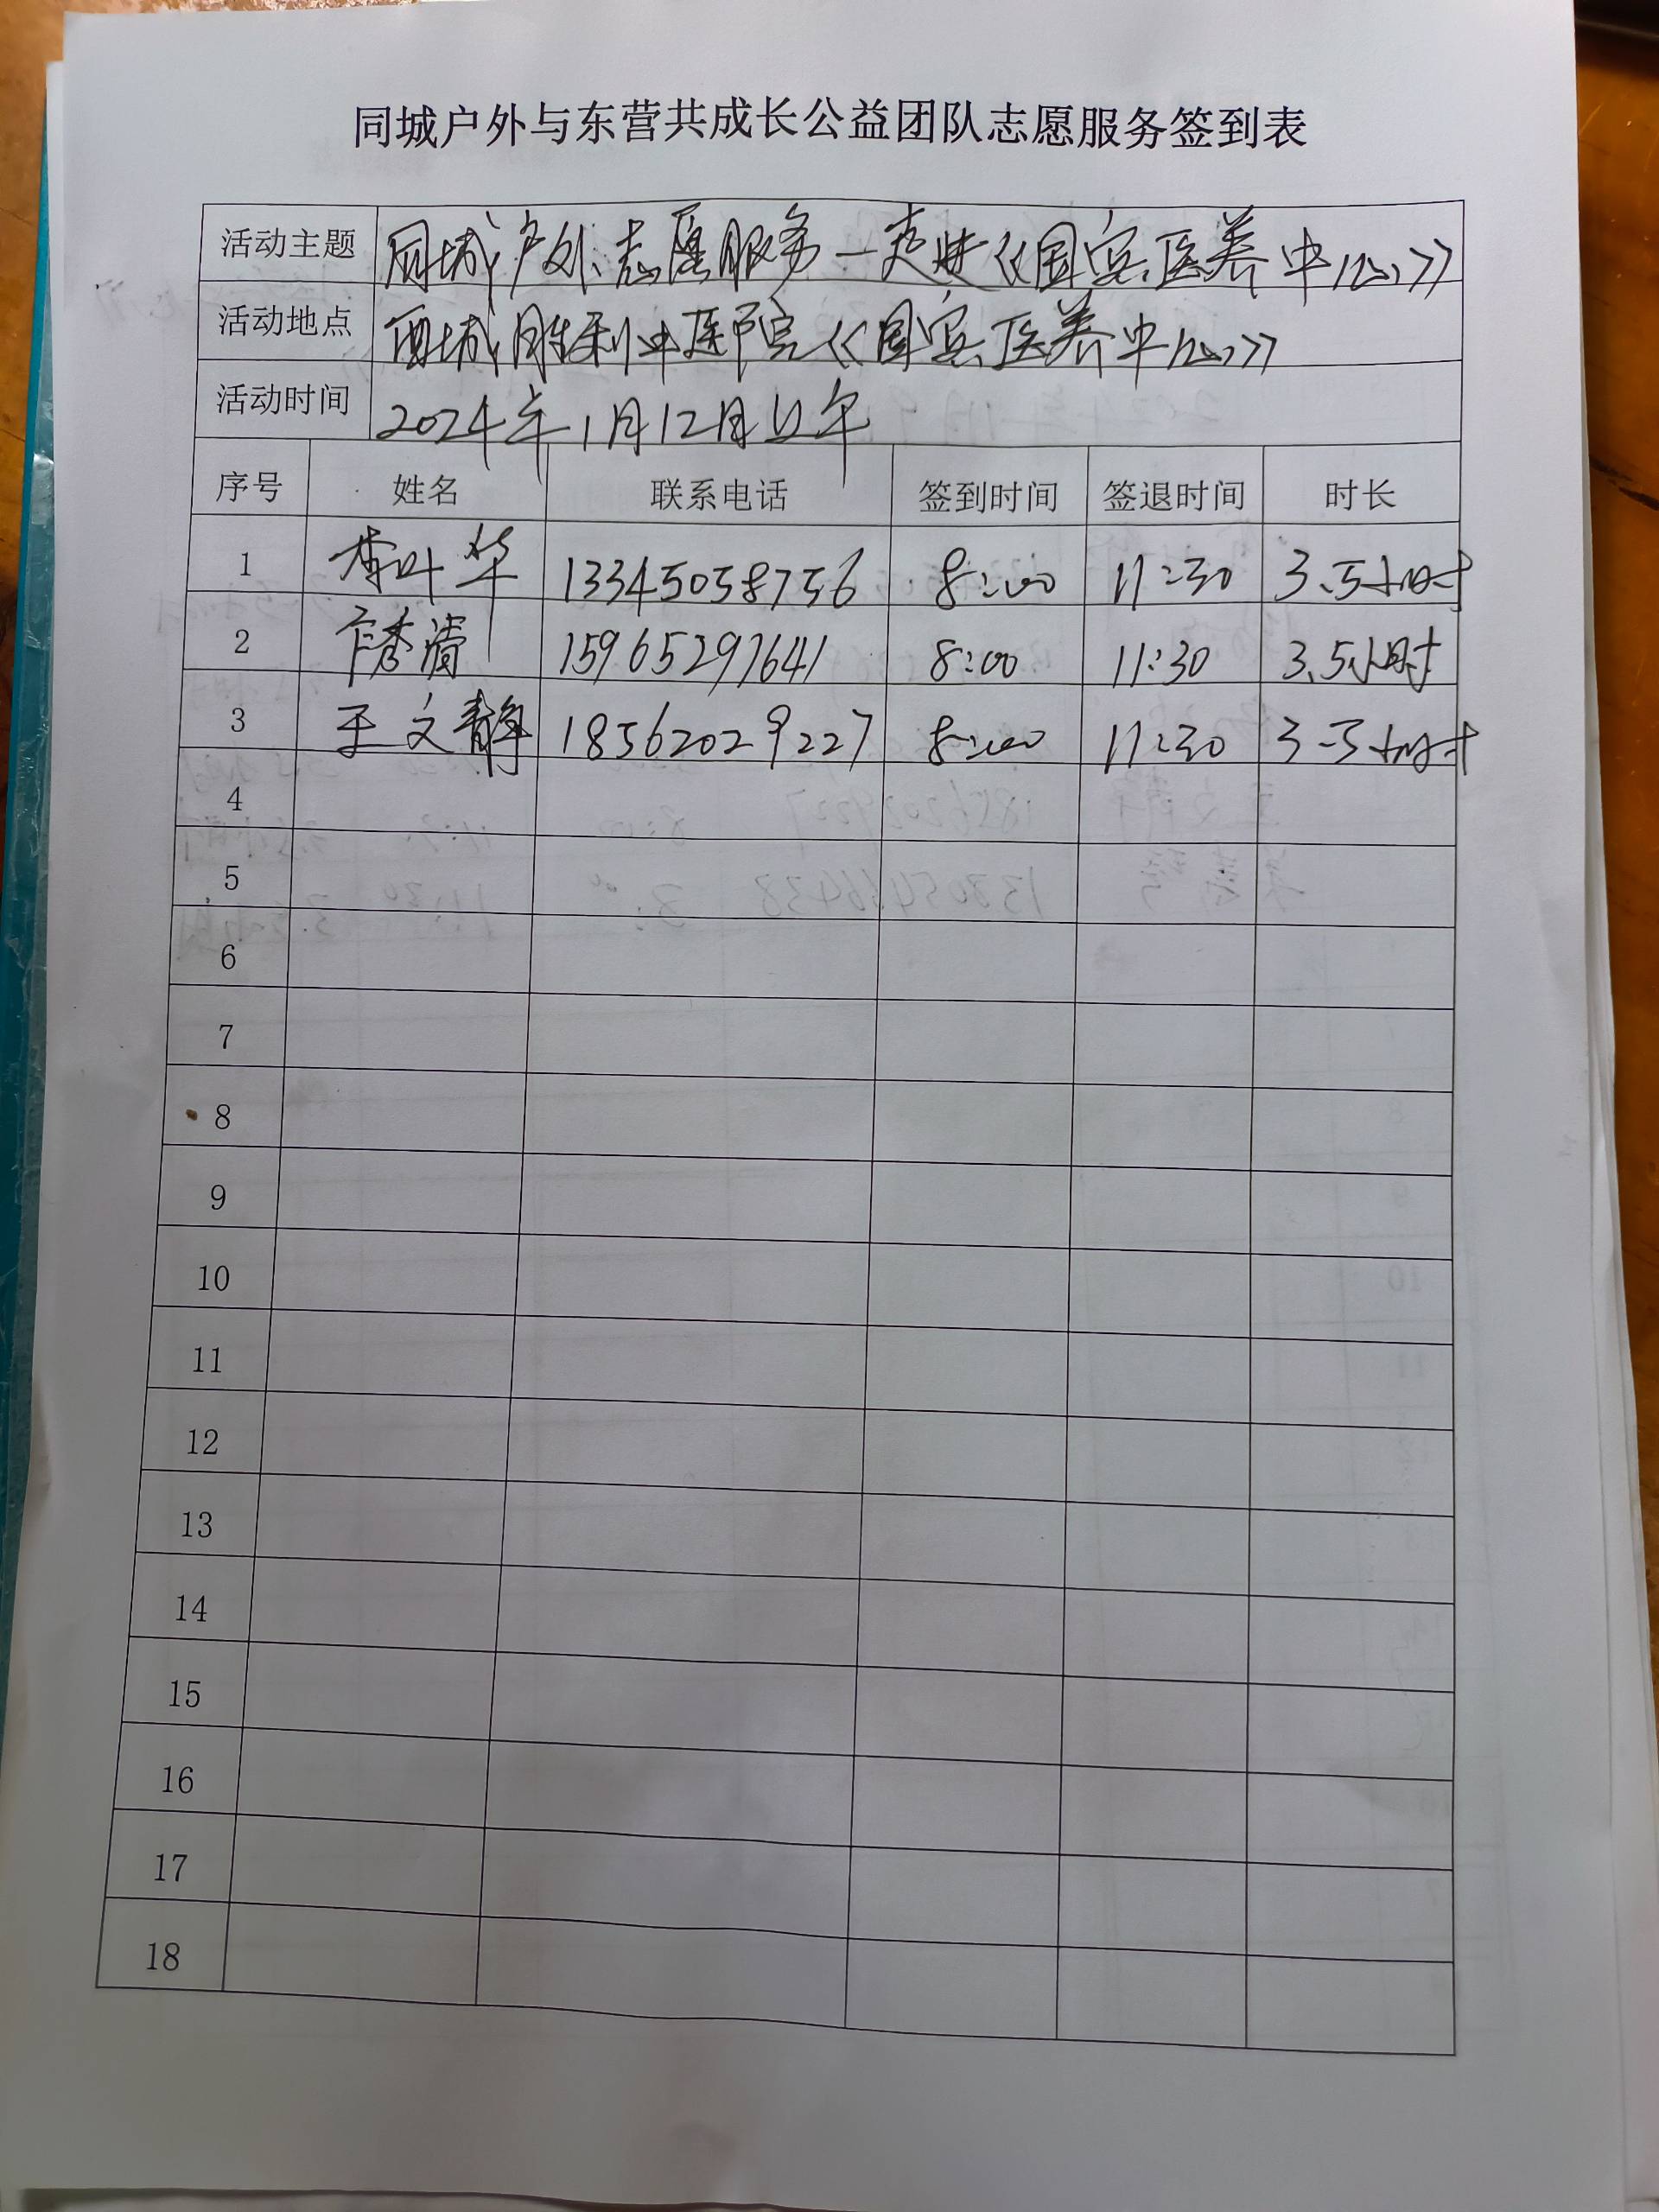 同城户外与东营共成长公益团队志愿服务签到表
活动主题 同城户外志愿服务一走进《国宾医养中心》
活动地点 西城胜利中医院《国宾医养中心》
活动时间 2024年1月12日上午
序号 姓名 联系电话 签到时间 签退时间 时长
1 叶华 13345058756 8:00 11:30 3.5小时
2 秀清 15965297641 8:00 11:30 3.5小时
3 王文静 18562029227 8:00 11:30 3.5小时
4
5
6
7
8
9
10
11
12
13
14
15
16
17
18